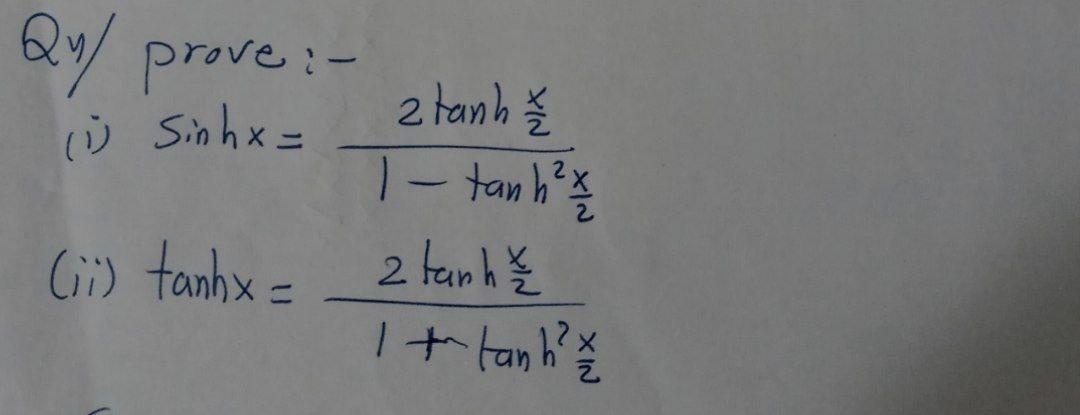 Qy/ prove :-
(i) Sinhx = 2 tanh x/2 / 1 - tanh² x/2
(ii) tanhx = 2 tanh x/2 / 1 + tanh² x/2